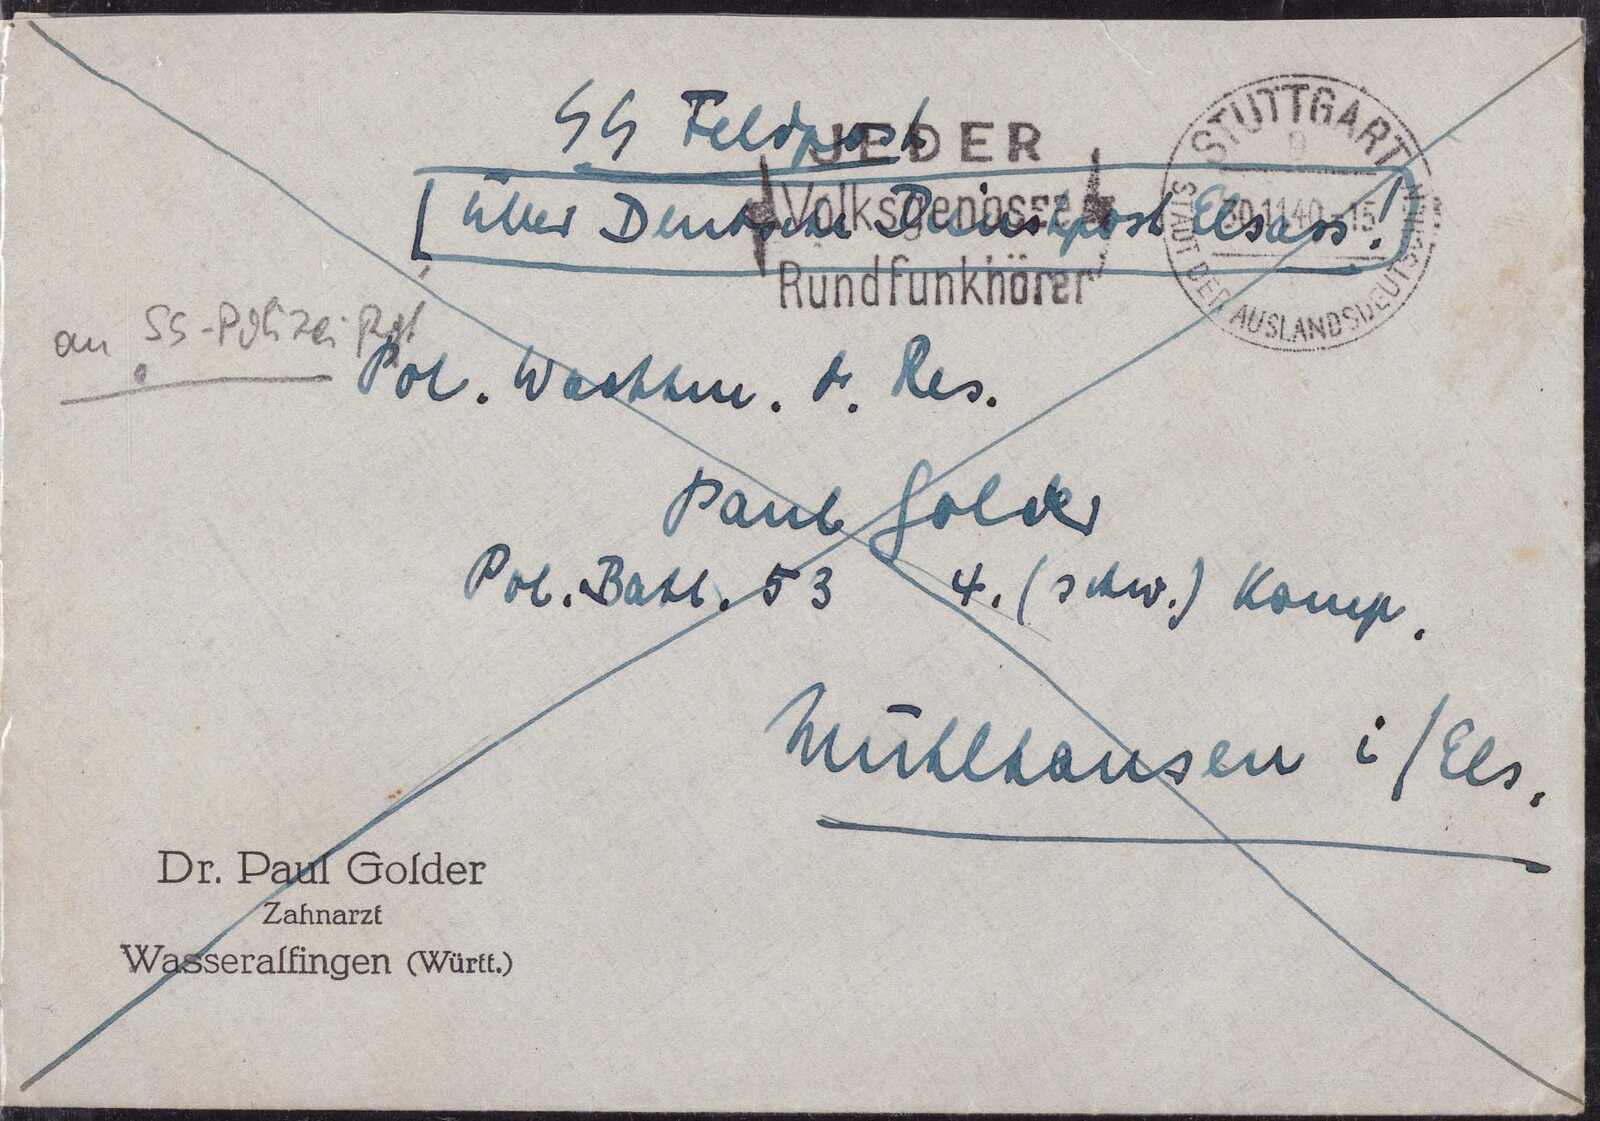 SS Feldpost
(über Deutsche Dienstpost Elsass!)
JEDER
Volksgenosse
Rundfunkhörer
STUTTGART
9
30.11.40.-15
STADT DER AUSLANDSDEUTSCHEN
an SS-Polizei Rgt
Pol. Wachtm. d. Res.
Paul Golder
Pol. Batl. 53 4. (schw.) Komp.
Mühlhausen i/Els.
Dr. Paul Golder
Zahnarzt
Wasseralfingen (Württ.)